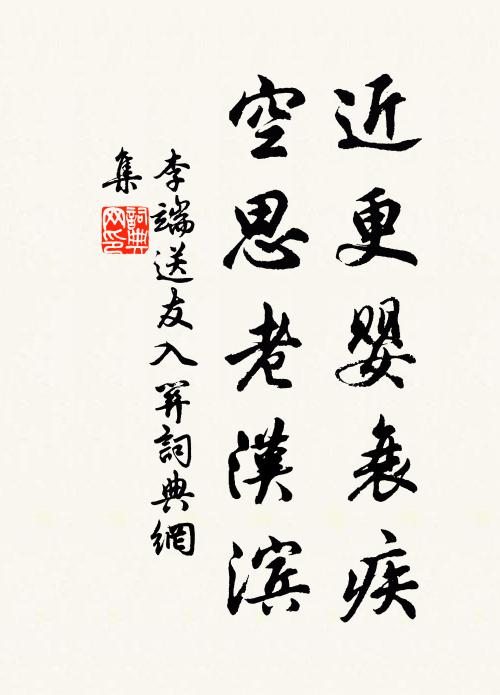 近更嬰衰疾
空思老漢滨
李端送友入關詞典網
集
詞典網印